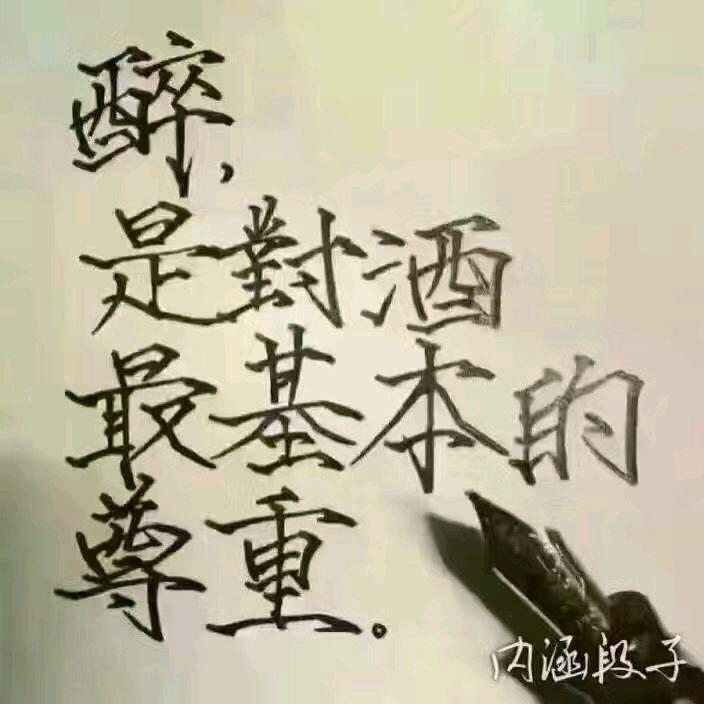 醉，
是對酒
最基本的
尊重。
内涵段子